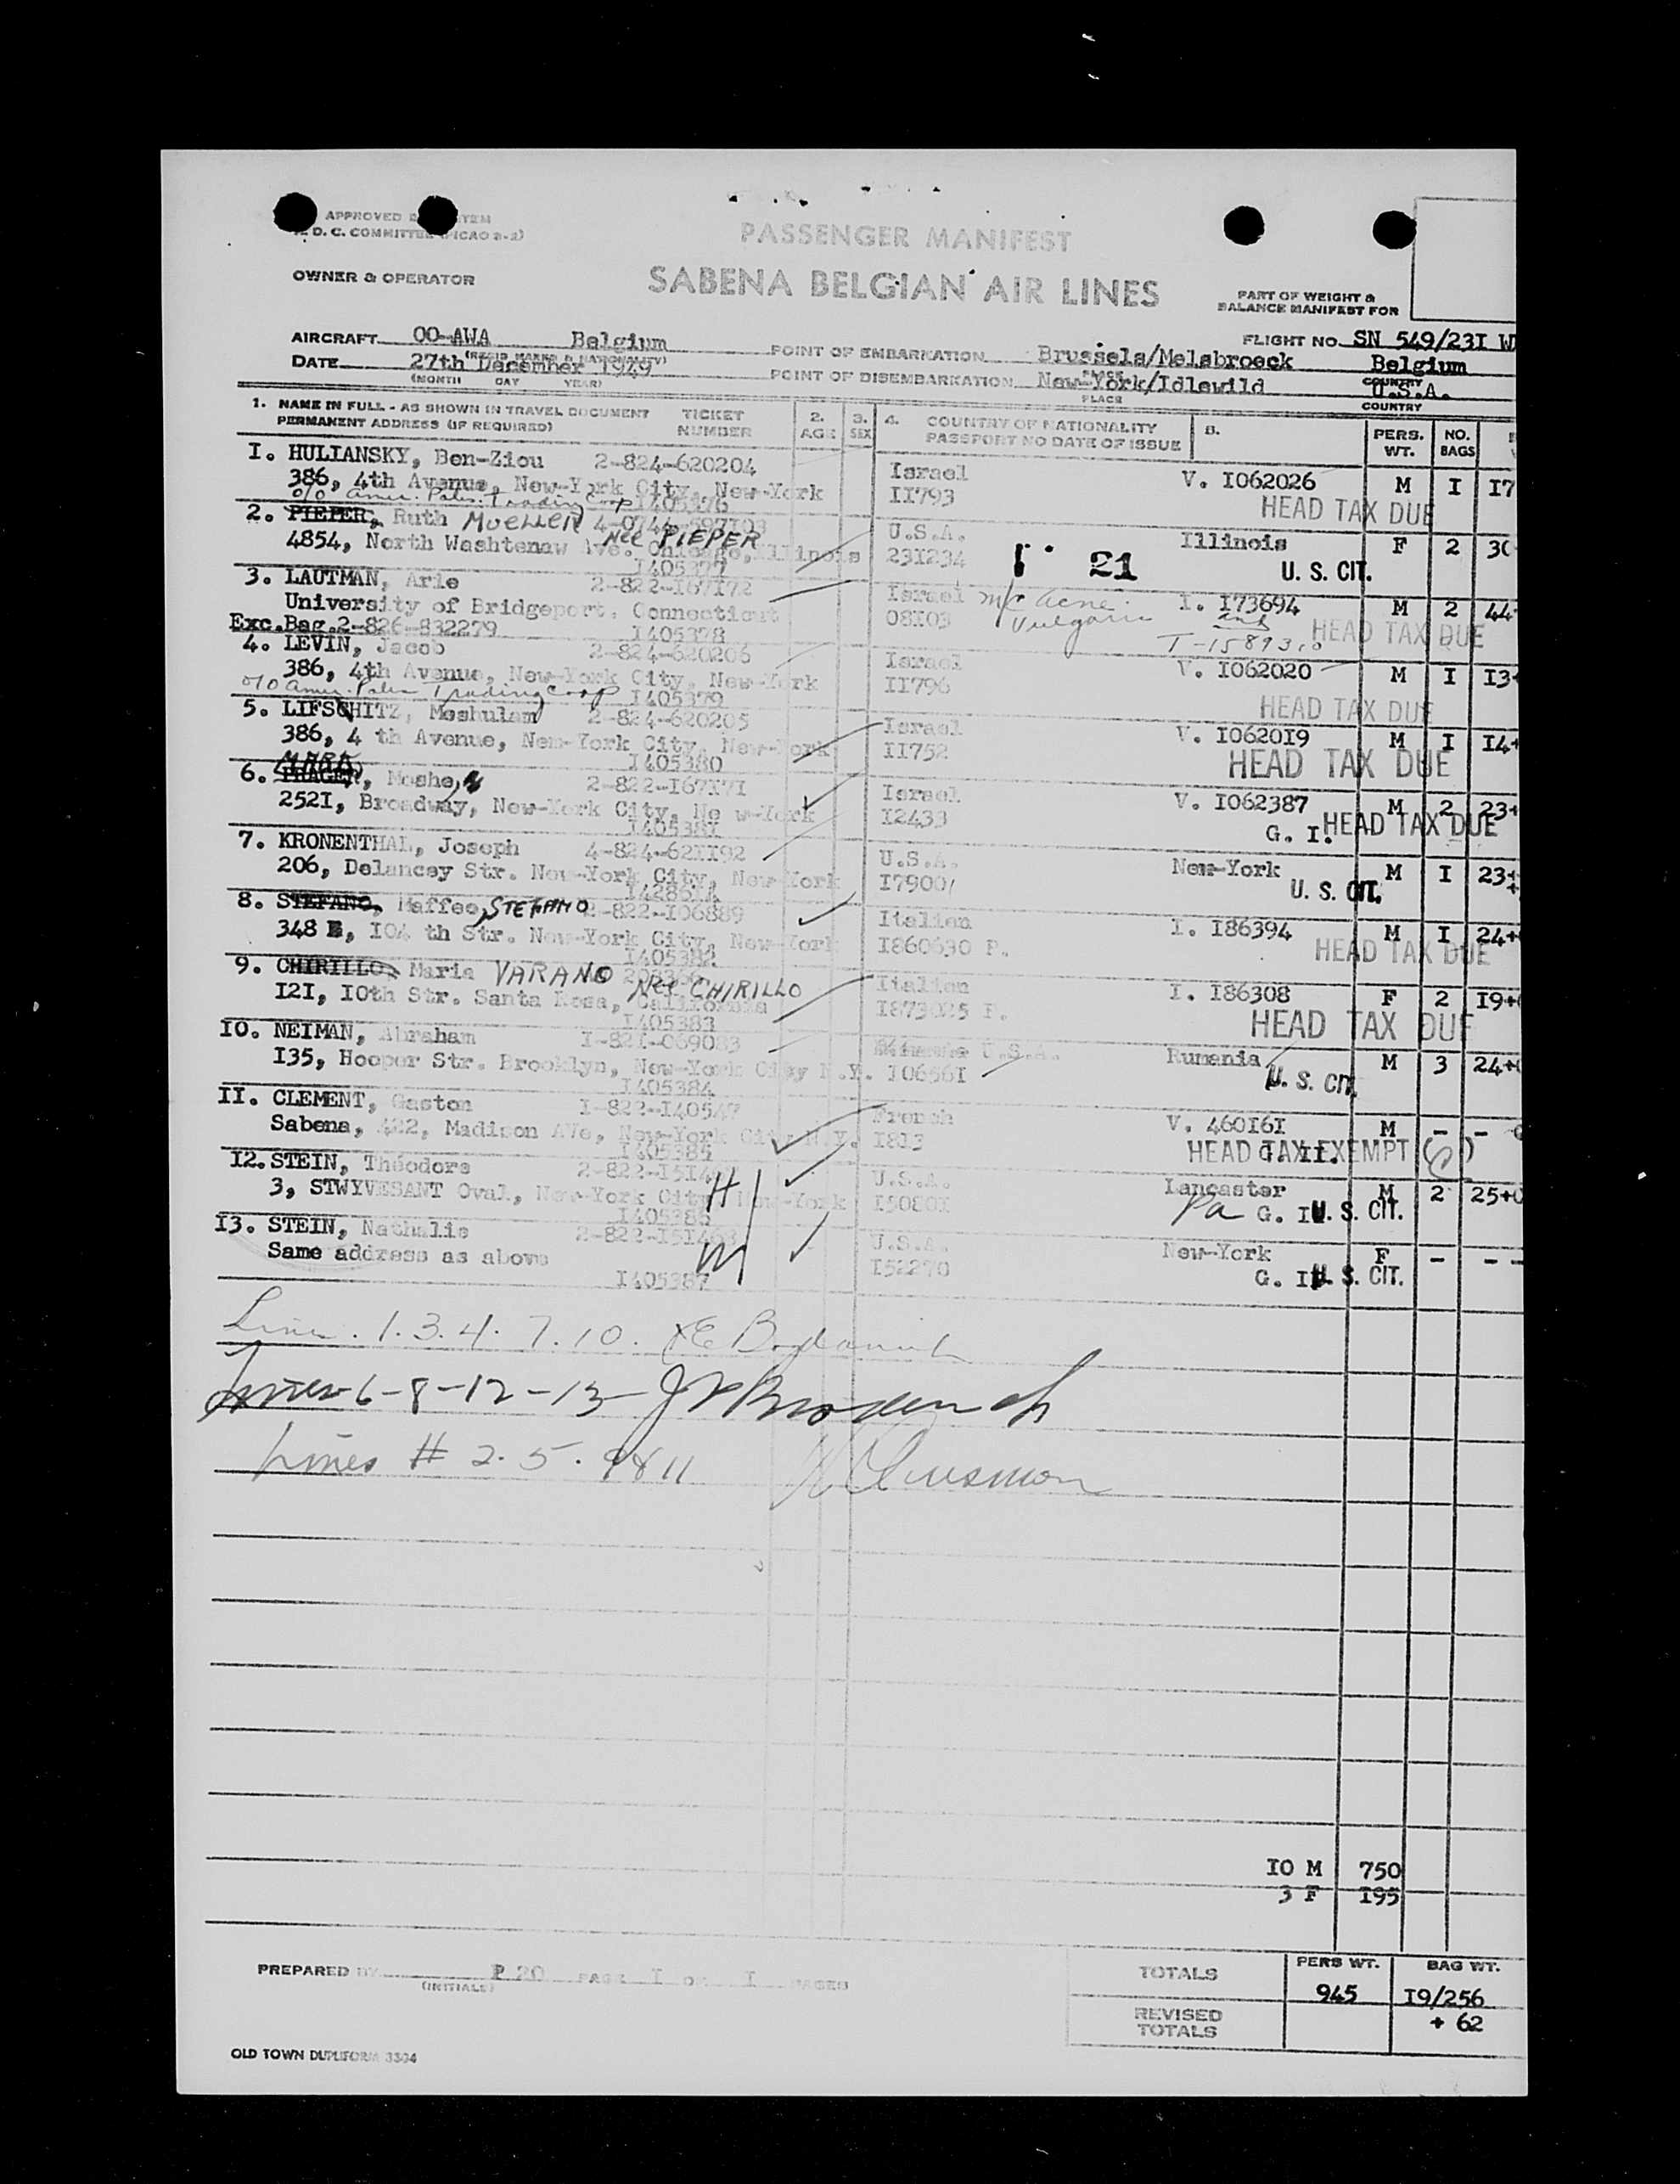 APPROVED
D. C. COMMITTEE (PICAO 2-2)
PASSENGER MANIFEST
OWNER & OPERATOR
SABENA BELGIAN AIR LINES
PART OF WEIGHT &
BALANCE MANIFEST FOR
AIRCRAFT OO-AWA Belgium
FLIGHT NO. SN 549/23I
(REGIS MARKS & NATIONALITY)
POINT OF EMBARKATION Brussels/Melsbroeck Belgium
DATE 27th December 1949
PLACE COUNTRY
(MONTH DAY YEAR)
POINT OF DISEMBARKATION New-York/Idlewild U.S.A.
PLACE COUNTRY
1. NAME IN FULL - AS SHOWN IN TRAVEL DOCUMENT TICKET 2. 3. 4. COUNTRY OF NATIONALITY B. PERS. NO.
PERMANENT ADDRESS (IF REQUIRED) NUMBER AGE SEX PASSPORT NO DATE OF ISSUE WT. BAGS
I. HULIANSKY, Ben-Ziou 2-824-620204 Israel V. I062026 M I I7
386, 4th Avenue, New-York City, New-York II793 HEAD TAX DUE
o/o Amer. Pales. Trading Coop I405376
2. PIEPER, Ruth MUELLER 4-0744-597I03 U.S.A. Illinois F 2 30
Nee PIEPER
4854, North Washtenaw Ave. Chicago, Illinois 23I234 21 U. S. CIT.
I405377
3. LAUTMAN, Arie 2-822-I67I72 Israel I. I73694 M 2 44
m/c acne Vulgaris
University of Bridgeport, Connecticut 08I03 T-15893 HEAD TAX DUE
Exc.Bag.2-826-832279 I405378
4. LEVIN, Jacob 2-824-620206 Israel V. I062020 M I I3
386, 4th Avenue, New-York City, New-York II796 HEAD TAX DUE
o/o Amer. Pales Trading Coop I405379
5. LIFSCHITZ, Meshulam 2-824-620205 Israel V. I0620I9 M I I4+
386, 4 th Avenue, New-York City, New-York II752 HEAD TAX DUE
I405380
MARA
6. PRAGER, Moshe, 2-822-I67I7I Israel V. I062387 M 2 23+
252I, Broadway, New-York City, Ne w-York I2433 G. I. HEAD TAX DUE
I40538I
7. KRONENTHAL, Joseph 4-824-62II92 U.S.A. New-York M I 23+
206, Delancey Str. New-York City, New-York I7900 U. S. CIT.
8. STEFANO, Maffeo, STEFANO 2-822-I06889 Italian I. I86394 M I 24+
348 E, I04 th Str. New-York City, New-York I860630 P. HEAD TAX DUE
I405382
9. CHIRILLO, Maria VARANO Italian I. I86308 F 2 I9+
Nee CHIRILLO
I2I, I0th Str. Santa Rosa, California I873025 P. HEAD TAX DUE
I405383
I0. NEIMAN, Abraham I-82I-069083 U.S.A. Rumania M 3 24+
I35, Hooper Str. Brooklyn, New-York City N.Y. I0656I U. S. CIT.
I405384
II. CLEMENT, Gaston I-822-I40547 French V. 460I6I M - -
Sabena, 422, Madison AVe, New-York City N.Y. I8I3 HEAD TAX EXEMPT
I405385
I2. STEIN, Théodore U.S.A. Lancaster M 2 25+
3, STWYVESANT Oval, New-York City, New-York H I5080I Pa G. II. U. S. CIT.
I405386
I3. STEIN, Nathalie U.S.A. New-York F - - -
Same address as above W I52270 G. II. U. S. CIT.
I405387
Lines . 1. 3. 4. 7. 10.
Lines 6-8-12-13
Lines # 2. 5. 9 & 11
I0 M 750
3 F I95
PREPARED BY P 20 PAGE I OF I PAGES
(INITIALS)
TOTALS PERS WT. BAG WT.
945 I9/256
REVISED TOTALS + 62
OLD TOWN DUPLIFORM 3304